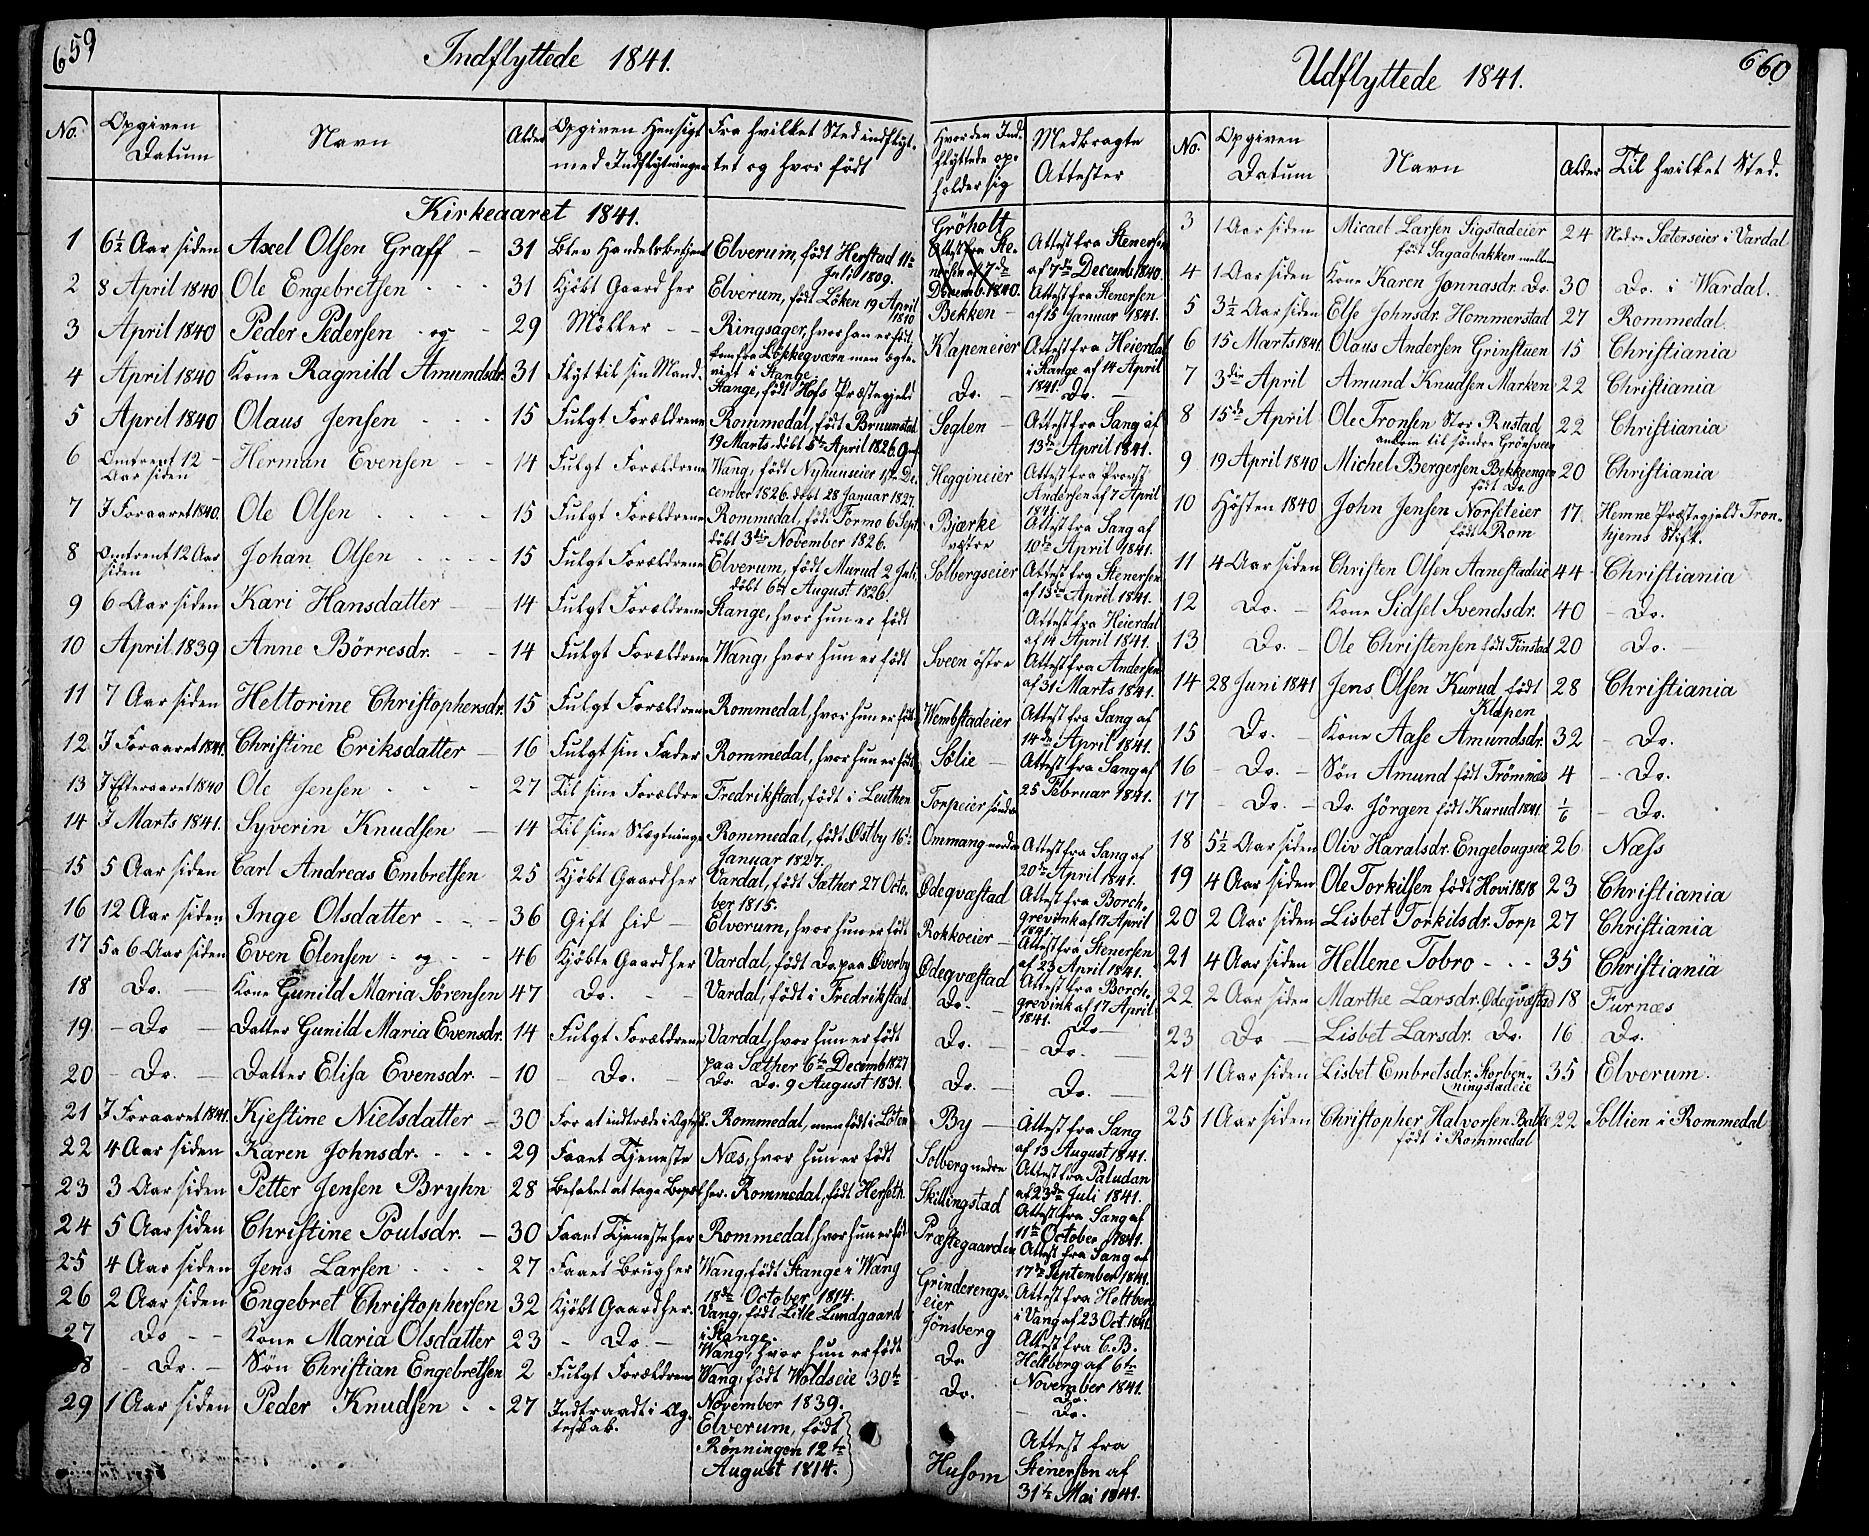 659
Indflyttede 1841.
No. | Opgiven Datum | Navn | Alder | Opgiven Hensigt med Indflytningen | Fra hvilket Sted indflyttet og hvor født | Hvor den Indflyttede opholder sig | Medbragte Attester
Kirkeaaret 1841.
1 | 6½ Aar siden | Axel Olsen Graff | 31 | Blev Handelsbetjent | Elverum, født Herstad 11te Juli 1809. | Gröholt | Attest fra Stenersen af 7de Decemb. 1840.
2 | 8 April 1840 | Ole Engebretsen | 31 | Kjöbt Gaard her | Elverum, født Löken 19 April 1810 | Bekken | Attest fra Stenersen af 15 Januar 1841.
3 | April 1840 | Peder Pedersen og | 29 | Møller | Ringsager, hvor han er født, kom fra Løkkeqværn men ægteviet i Stange | Klapeneier | Attest fra Heierdal i Stange af 14 April 1841.
4 | April 1840 | Kone Ragnild Amundsdr. | 31 | Flyt til sin Mand. | Stange, født Hofs Præstegjeld | Do. | Do.
5 | April 1840 | Olaus Jensen | 15 | Fulgt Forældrene | Rommedal, født Bruunstad 19 Marts døbt 5te April 1826. | Seglen | Attest fra Sang af 13de April 1841.
6 | Omtrent 12 Aar siden | Herman Evensen | 14 | Fulgt Forældrene | Wang, født Nyhuuseier 1ste December 1826. døbt 28 Januar 1827. | Heggineier | Attest fra Provst Andersen af 7 April 1841.
7 | I Foraaret 1840. | Ole Olsen | 15 | Fulgt Forældrene | Rommedal, født Formo 6 Sept. døbt 3die November 1826. | Bjærke vestre | Attest fra Sang af 10de April 1841.
8 | Omtrent 12 Aar siden | Johan Olsen | 15 | Fulgt Forældrene | Elverum, født Murud 2 Juli, døbt 6te August 1826. | Solbergseier | Attest fra Stenersen af 13de April 1841.
9 | 6 Aar siden | Kari Hansdatter | 14 | Fulgt Forældrene | Stange, hvor hun er født | Attest fra Heierdal af 14 April 1841.
10 | April 1839 | Anne Börresdr. | 14 | Fulgt Forældrene | Wang, hvor hun er født | Sveen östre | Attest fra Andersen af 31 Marts 1841.
11 | 7 Aar siden | Heltorine Christophersdr. | 15 | Fulgt Forældrene | Rommedal, hvor hun er født | Wembstadeier | Attest fra Sang af 14de April 1841.
12 | I Foraaret 1841. | Christine Eriksdatter | 16 | Fulgt sin Fader | Rommedal, hvor hun er født | Sølie | Attest fra Sang af 25 Februar 1841.
13 | I Efteraaret 1840 | Ole Jensen | 27 | Til sine Forældre | Fredrikstad, født i Leuthen | Torpeier søndre
14 | I Marts 1841. | Syverin Knudsen | 14 | Til sine Slægtninge | Rommedal, født Østby 16de Januar 1827. | Ommang nedre | Attest fra Sang af 20de April 1841.
15 | 5 Aar siden | Carl Andreas Embretsen | 25 | Kjöbt Gaard her | Vardal, født Sæther 27 October 1815. | Ødeqvæstad | Attest fra Borchgrevink af 17 April 1841.
16 | 12 Aar siden | Inge Olsdatter | 36 | Gift hid | Elverum, hvor hun er født | Rokkoeier | Attest fra Stenersen af 23 April 1841.
17 | 5 a 6 Aar siden | Even Elensen og | 46 | Kjöbte Gaard her | Vardal, født Do. paa Øverby | Ødeqvæstad | Attest fra Borchgrevink af 17 April 1841.
18 | Do. | Kone Gunild Maria Sørensen | 47 | Do. | Vardal, født i Fredrikstad | Do. | Do.
19 | Do | Datter Gunild Maria Evensdr. | 14 | Fulgt Forældrene | Vardal, hvor hun er født paa Sæther 6te Decemb 1827 | Do. | Do.
20 | Do. | Datter Elisa Evensdr. | 10 | Do. | Do. Do. 9 August 1831. | Do. | Do.
21 | I Foraaret 1841. | Kjestine Nielsdatter | 30 | For at indtræde i Ægtsk. | Rommedal, men født i Løten | By | Attest fra Sang af 13 August 1841.
22 | 4 Aar siden | Karen Johnsdr. | 29 | Faaet Tjeneste | Næs, hvor hun er født | Solberg nedre | Attest fra Paludan af 23de Juli 1841.
23 | 3 Aar siden | Petter Jensen Bryhn | 28 | Besluttet at tage Bopæl her. | Rommedal, født Herseth. | Skillingstad | Attest fra Sang af 11te October 1841.
24 | 5 Aar siden | Christine Poulsdr. | 30 | Faaet Tjeneste her | Rommedal hvor hun er født | Præstegaarden | Attest fra Sang af 17de September 1841.
25 | 4 Aar siden | Jens Larsen | 27 | Faaet Brug her | Wang, født Stange i Wang 18de October 1814. | Grinderengseier | Attest fra Heltberg i Vang af 23 Oct. 1841
26 | 2 Aar siden | Engebret Christophersen | 32 | Kjöbt Gaard her. | Vang, født Lille Lundgaard i Stange. | Jönsberg | Attest fra C.B. Heltberg af 6te November 1841.
27 | Do | Kone Maria Olsdatter | 23 | Do. | Wang, hvor hun er født | Do. | Do.
28 | Do. | Søn Christian Engebretsen | 2 | Fulgt Forældrene | Wang, født Woldseie 30te November 1839. | Do. | Do.
29 | 1 Aar siden | Peder Knudsen | 27 | Indtraadt i Ægteskab. | Elverum, født Rønningen 12te August 1814. | Husom | Attest fra Stenersen af 31te Mai 1841.
660
Udflyttede 1841.
No. | Opgiven Datum | Navn | Alder | Til hvilket Sted.
3 | 1 Aar siden | Micael Larsen Sigstadeier født Sagaabakken mellem | 24 | Nedre Sæterseier i Vardal
4 | 1 Aar siden | Kone Karen Jonnasdr. Do. | 30 | Do. i Wardal.
5 | 3½ Aar siden | Else Johnsdr. Hommerstad | 27 | Rommedal.
6 | 15 Marts 1841. | Olaus Andersen Grinstuen | 15 | Christiania
7 | 3die April | Amund Knudsen Marken | 22 | Christiania
8 | 15de April | Ole Tronsen Stor Rustad ankom til søndre Grönsveen | 22 | Christiania
9 | 19 April 1840 | Michel Bergersen Bekkeengen født Do. | 20 | Christiania
10 | Hösten 1840 | John Jensen Norseteier født Rom | 17. | Hemne Præstegjeld Tronhjems Stift.
11 | 4 Aar siden | Christen Olsen Aanestadeie | 44 | Christiania
12 | Do. | Kone Sidsel Svendsdr. | 40 | Do.
13 | Do. | Ole Christensen født Finstad | 20 | Do.
14 | 28 Juni 1841 | Jens Olsen Kurud født Klapen | 28 | Christiania
15 | Do. | Kone Aase Amundsdr. | 32 | Do.
16 | Do. | Søn Amund født Trömnæs | 4 | Do.
17 | Do. | Do. Jörgen født Kurud 1841. | 1/6 | Do.
18 | 5½ Aar siden | Oliv Haralsdr. Engelaugseie | 26 | Næss
19 | 4 Aar siden | Ole Torkilsen født Hovi 1818 | 23 | Christiania
20 | 2 Aar siden | Lisbet Torkilsdr. Torp | 27 | Christiania
21 | 4 Aar siden | Hellene Tobro | 35 | Christiania
22 | 2 Aar siden | Marthe Larsdr. Ødeqvæstad | 18 | Furnæs
23 | Do | Lisbet Larsdr. Do. | 16 | Do.
24 | 1 Aar siden | Lisbet Embretsdr. Storbenningstadeie | 35 | Elverum.
25 | 1 Aar siden | Christopher Halvorsen Bakke født i Rommedal | 22 | Sollien i Rommedal